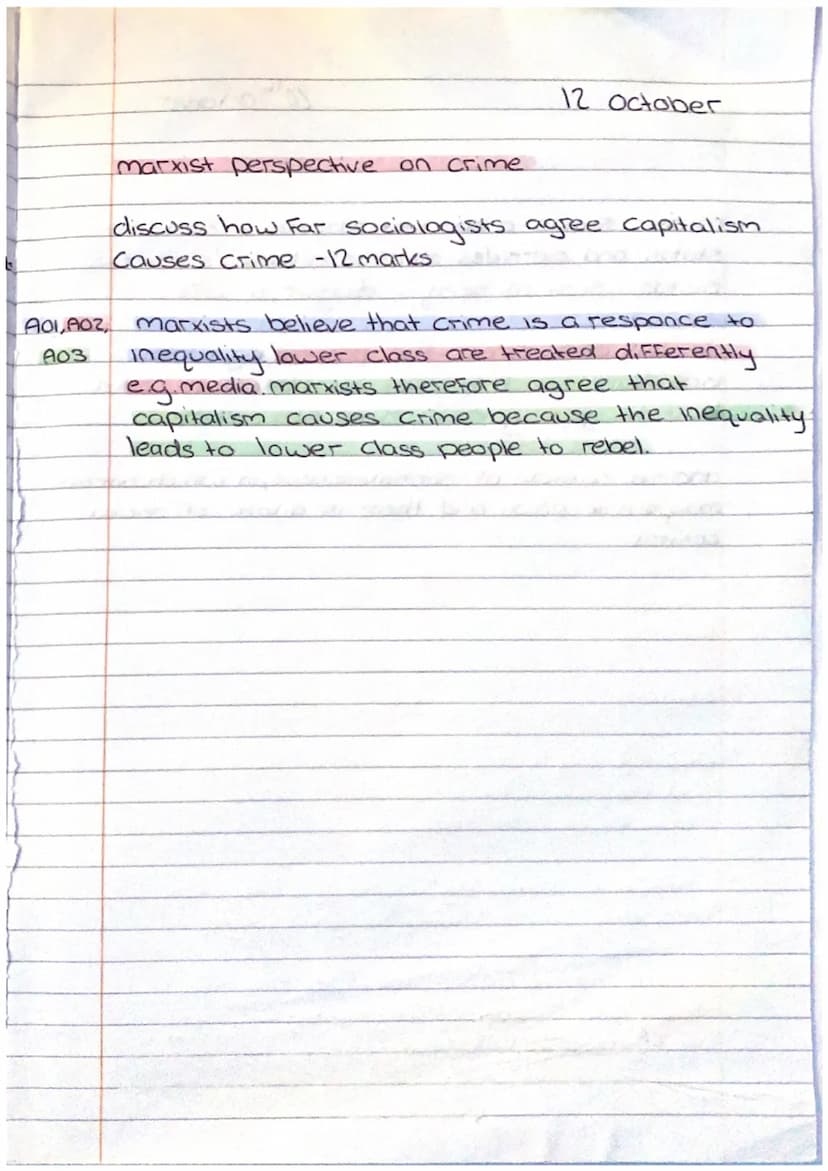 12 October
marxist perspective on crime
discuss how far sociologists agree capitalism
causes crime - 12 marks
A01, A02, marxists believe that crime is a responce to
A03 inequality lower class are treated differently
e.g. media. marxists therefore agree that
capitalism causes crime because the inequality
leads to lower class people to rebel.